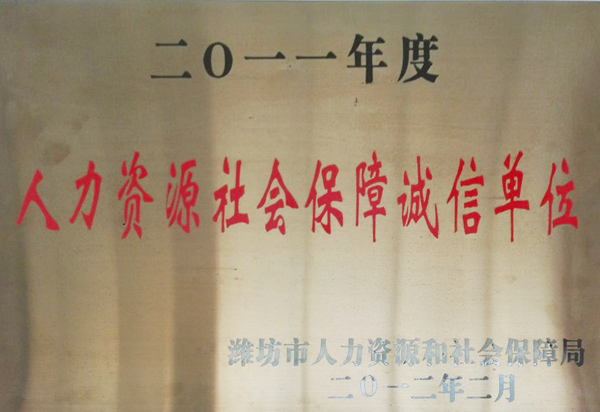 二〇一一年度
人力资源社会保障诚信单位
潍坊市人力资源和社会保障局
二〇一二年二月